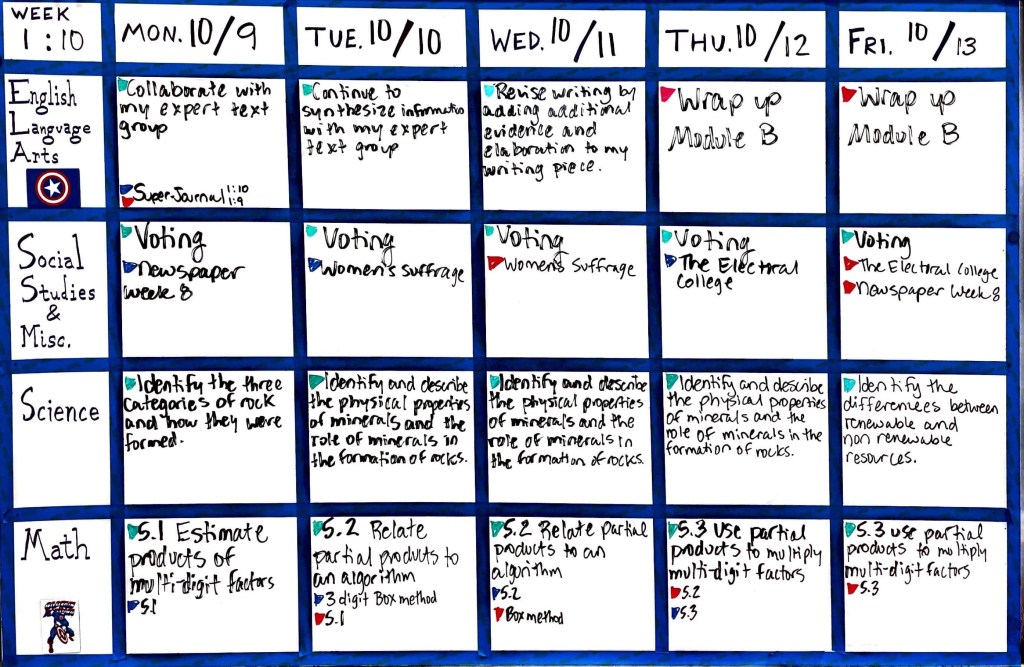 WEEK
1:10
MON. 10/9
TUE. 10/10
WED. 10/11
THU. 10/12
FRI. 10/13
English
Language
Arts
Collaborate with
my expert text
group
Super-Journal 1:10
1:9
Continue to
synthesize informatio
with my expert
text group
Revise writing by
adding additional
evidence and
elaboration to my
writing piece.
Wrap up
Module B
Wrap up
Module B
Social
Studies
&
Misc.
Voting
Newspaper
Week 8
Voting
Women's Suffrage
Voting
Women's Suffrage
Voting
The Electoral
College
Voting
The Electoral College
Newspaper Week 8
Science
Identify the three
categories of rock
and how they were
formed.
Identify and describe
the physical properties
of minerals and the
role of minerals in
the formation of rocks.
Identify and describe
the physical properties
of minerals and the
role of minerals in
the formation of rocks.
Identify and describe
the physical properties
of minerals and the
role of minerals in the
formation of rocks.
Identify the
differences between
renewable and
non renewable
resources.
Math
5.1 Estimate
products of
multi-digit factors
5.1
5.2 Relate
partial products to
an algorithm
3 digit Box method
5.1
5.2 Relate partial
products to an
algorithm
5.2
Box method
5.3 Use partial
products to multiply
multi-digit factors
5.2
5.3
5.3 use partial
products to multiply
multi-digit factors
5.3